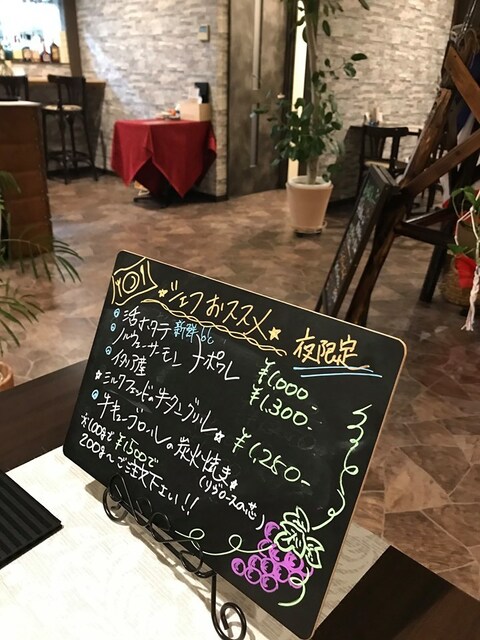 シェフおススメ
夜限定
活ホタテ 新鮮
ノルウェーサーモン ナポワレ ¥1,000-
イタリア産 ¥1,300-
ミルクフェッドの牛タングリル ¥1,250-
牛キューブロールの炭火焼き
(リブロースの芯)
100gで¥1,500で
200g〜ご注文下さい!!